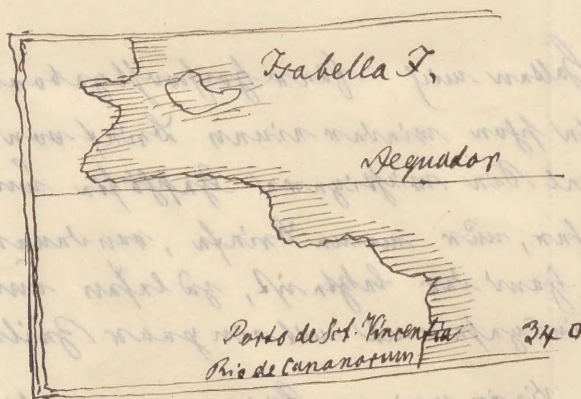 Isabella I.
Aequador
Porto de Sct. Vincentio
Rio de Cananorum
340